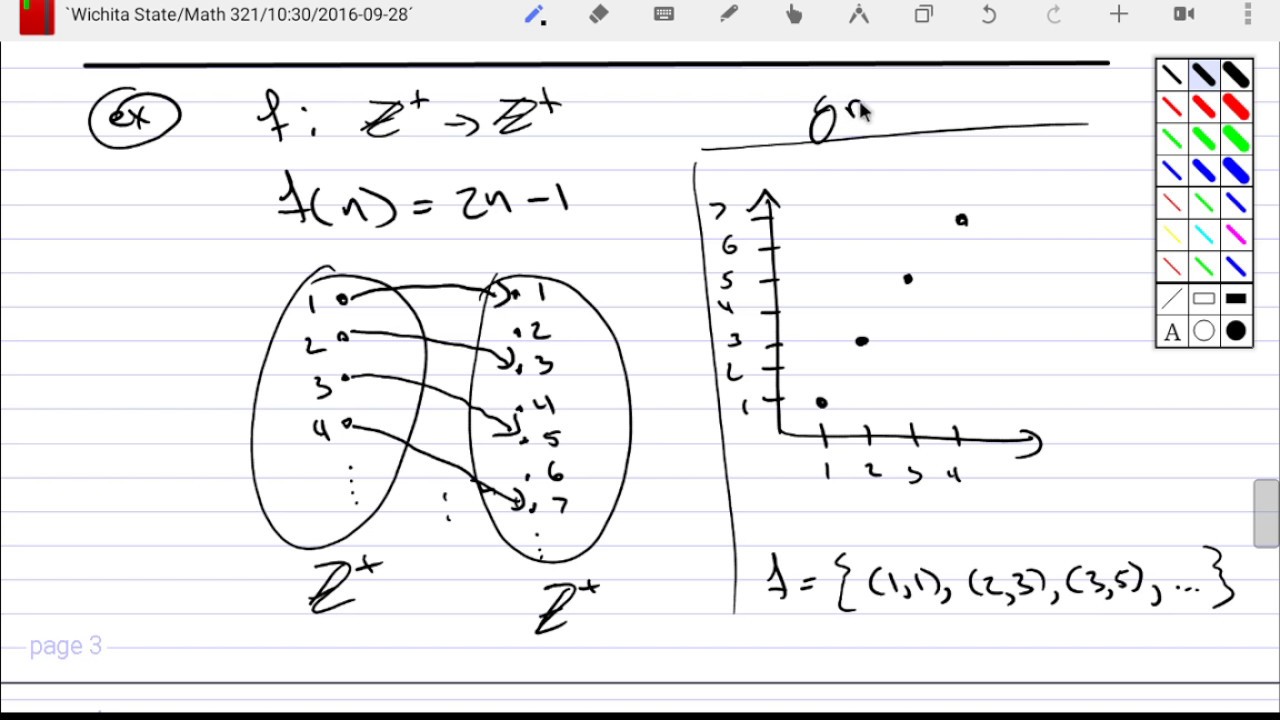 `Wichita State/Math 321/10:30/2016-09-28´
ex
f: ℤ⁺ → ℤ⁺
f(n) = 2n - 1
1
2
3
4
⋮
ℤ⁺
1
2
3
4
5
6
7
⋮
ℤ⁺
7
6
5
4
3
2
1
1 2 3 4
f = { (1,1), (2,3), (3,5), ... }
page 3
A